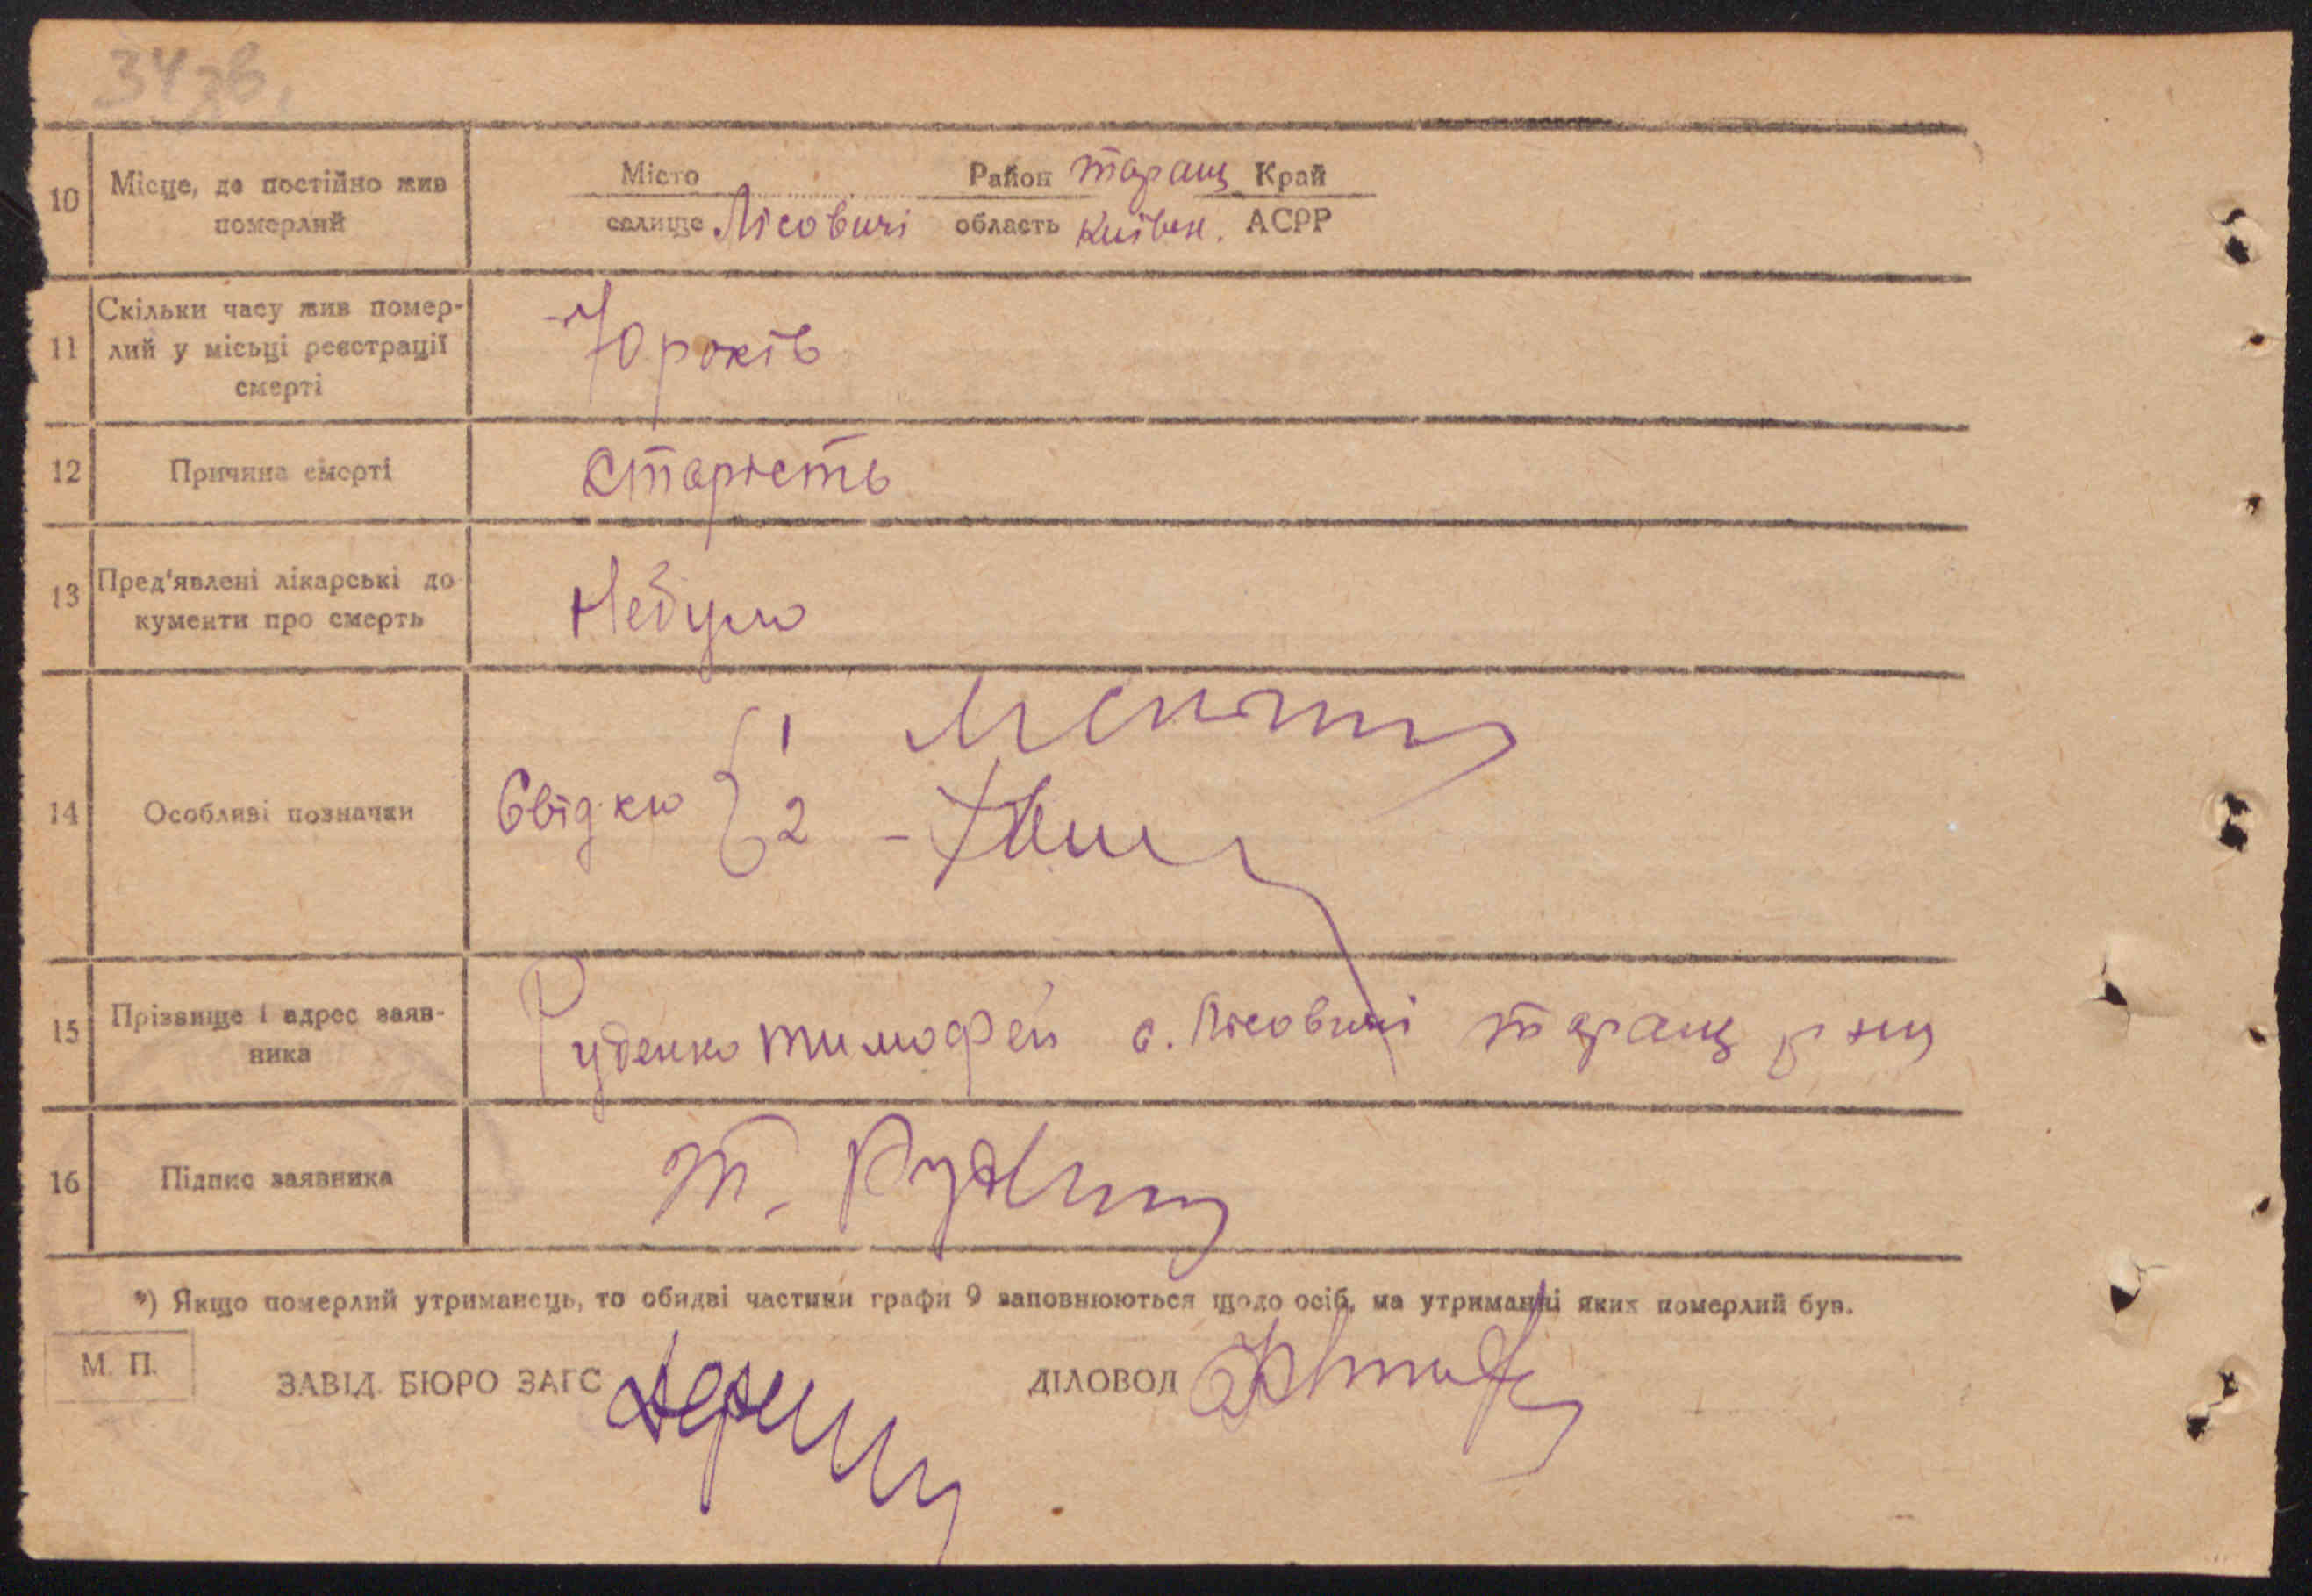 34 зв.
10 Місце, де постійно жив померлий
Місто Район Таращ Край
селище Лісовичі область Київськ. АСРР
11 Скільки часу жив помер-
лий у місьці реєстрації
смерті
70 років
12 Причина смерті старість
13 Пред'явлені лікарські до
кументи про смерть
Небуло
14 Особливі позначки Свідки { 1
2 -
15 Прізвище і адрес заяв-
ника
Руденко Тимофей с. Лісовичі Таращ р ну
16 Підпис заявника Т. Руденко
*) Якщо померлий утриманець, то обидві частини графи 9 заповнюються щодо осіб, на утриманні яких померлий був.
М. П.
ЗАВІД. БЮРО ЗАГС ДІЛОВОД